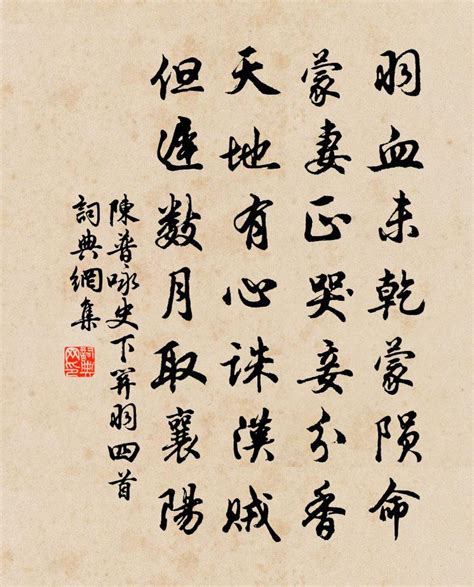 羽血未乾蒙隕命
蒙妻正哭妾分香
天地有心誅漢賊
但遲數月取襄陽
陳普咏史下關羽四首
詞典網集
詞典网印